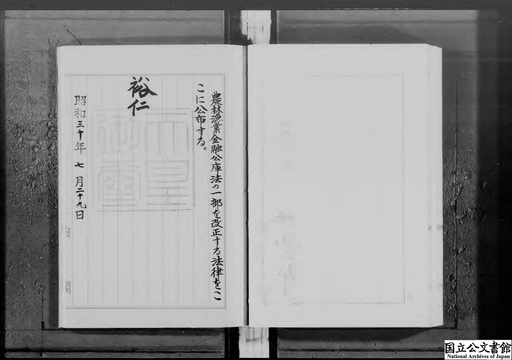 農林漁業金融公庫法の一部を改正する法律をこ
こに公布する。
裕仁
天皇
御璽
昭和三十年七月二十九日
国立公文書館
National Archives of Japan